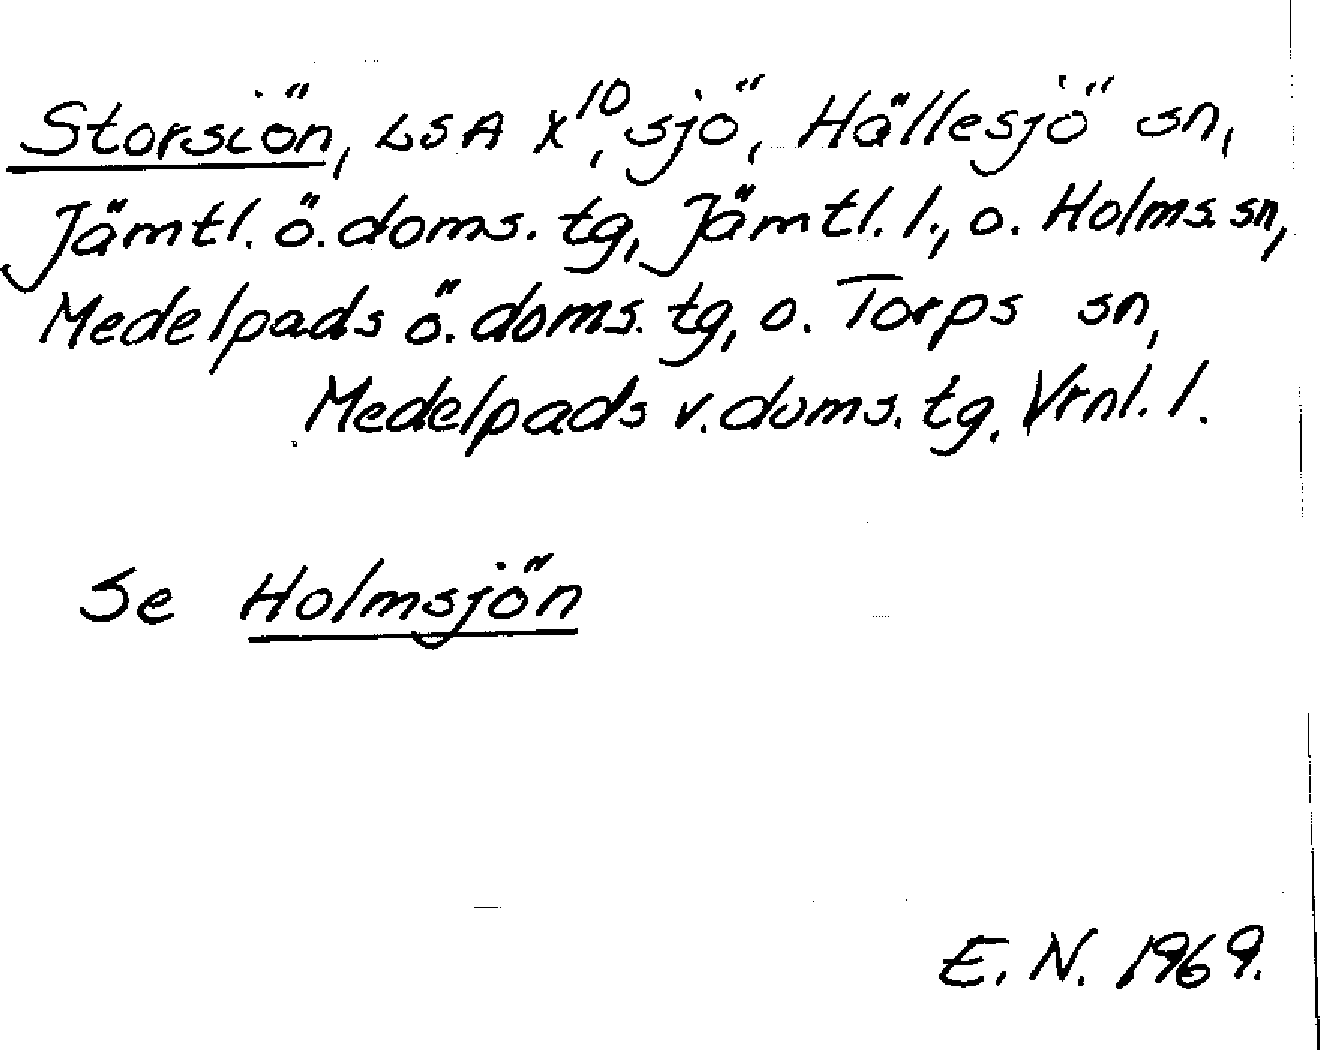 Storsiön, LSA X¹⁰, sjö, Hällesjö sn,
Jämtl. ö. doms. tg, Jämtl. l., o. Holms. sn,
Medelpads ö. doms. tg, o. Torps sn,
Medelpads v. doms. tg. Vrnl. l.
Se Holmsjön
E. N. 1969.